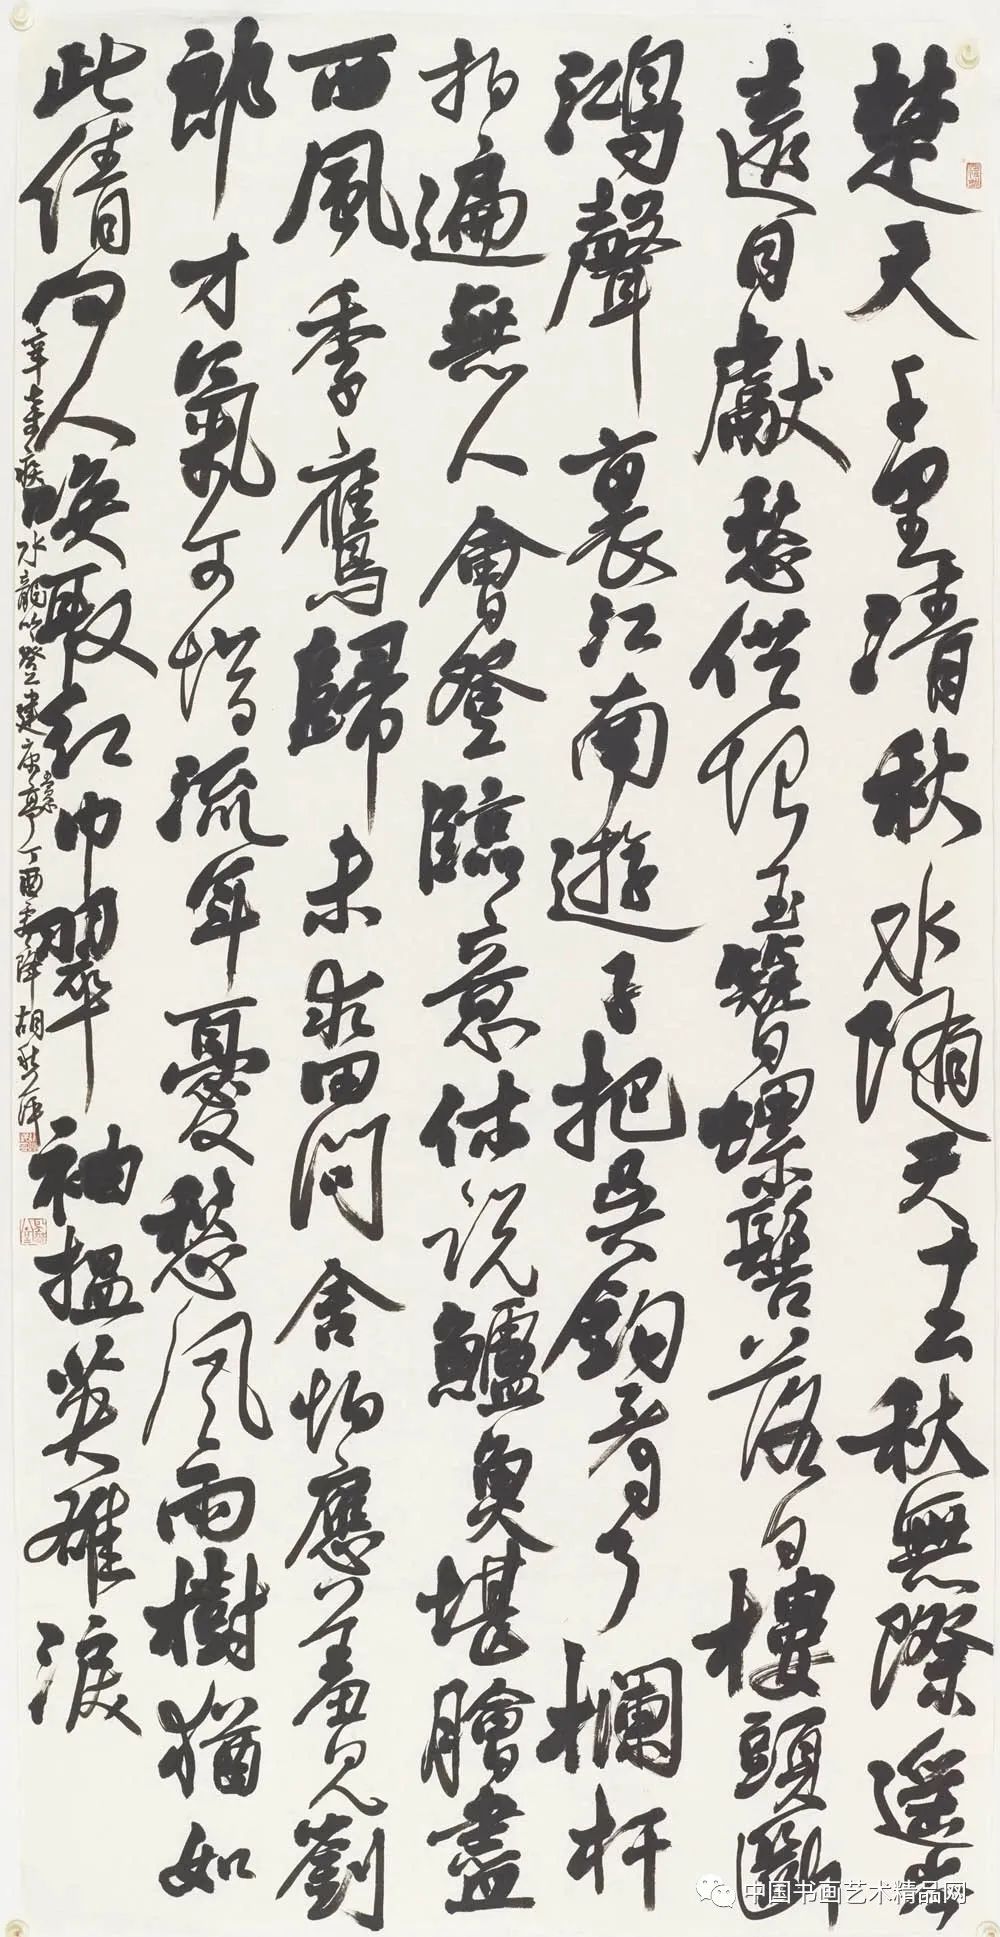 楚天千里清秋水随天去秋無際遥岑
遠目獻愁供恨玉簪螺髻落日樓頭斷
鴻聲裏江南遊子把吴鈎看了欄杆
拍遍無人會登臨意休説鱸魚堪膾盡
西風季鷹歸未求田問舍怕應羞見劉
郎才氣可惜流年憂愁風雨樹猶如
此倩何人唤取紅巾翠袖揾英雄淚
辛弃疾水龍吟登建康賞亭丁酉霜降胡秋萍
中国书画艺术精品网